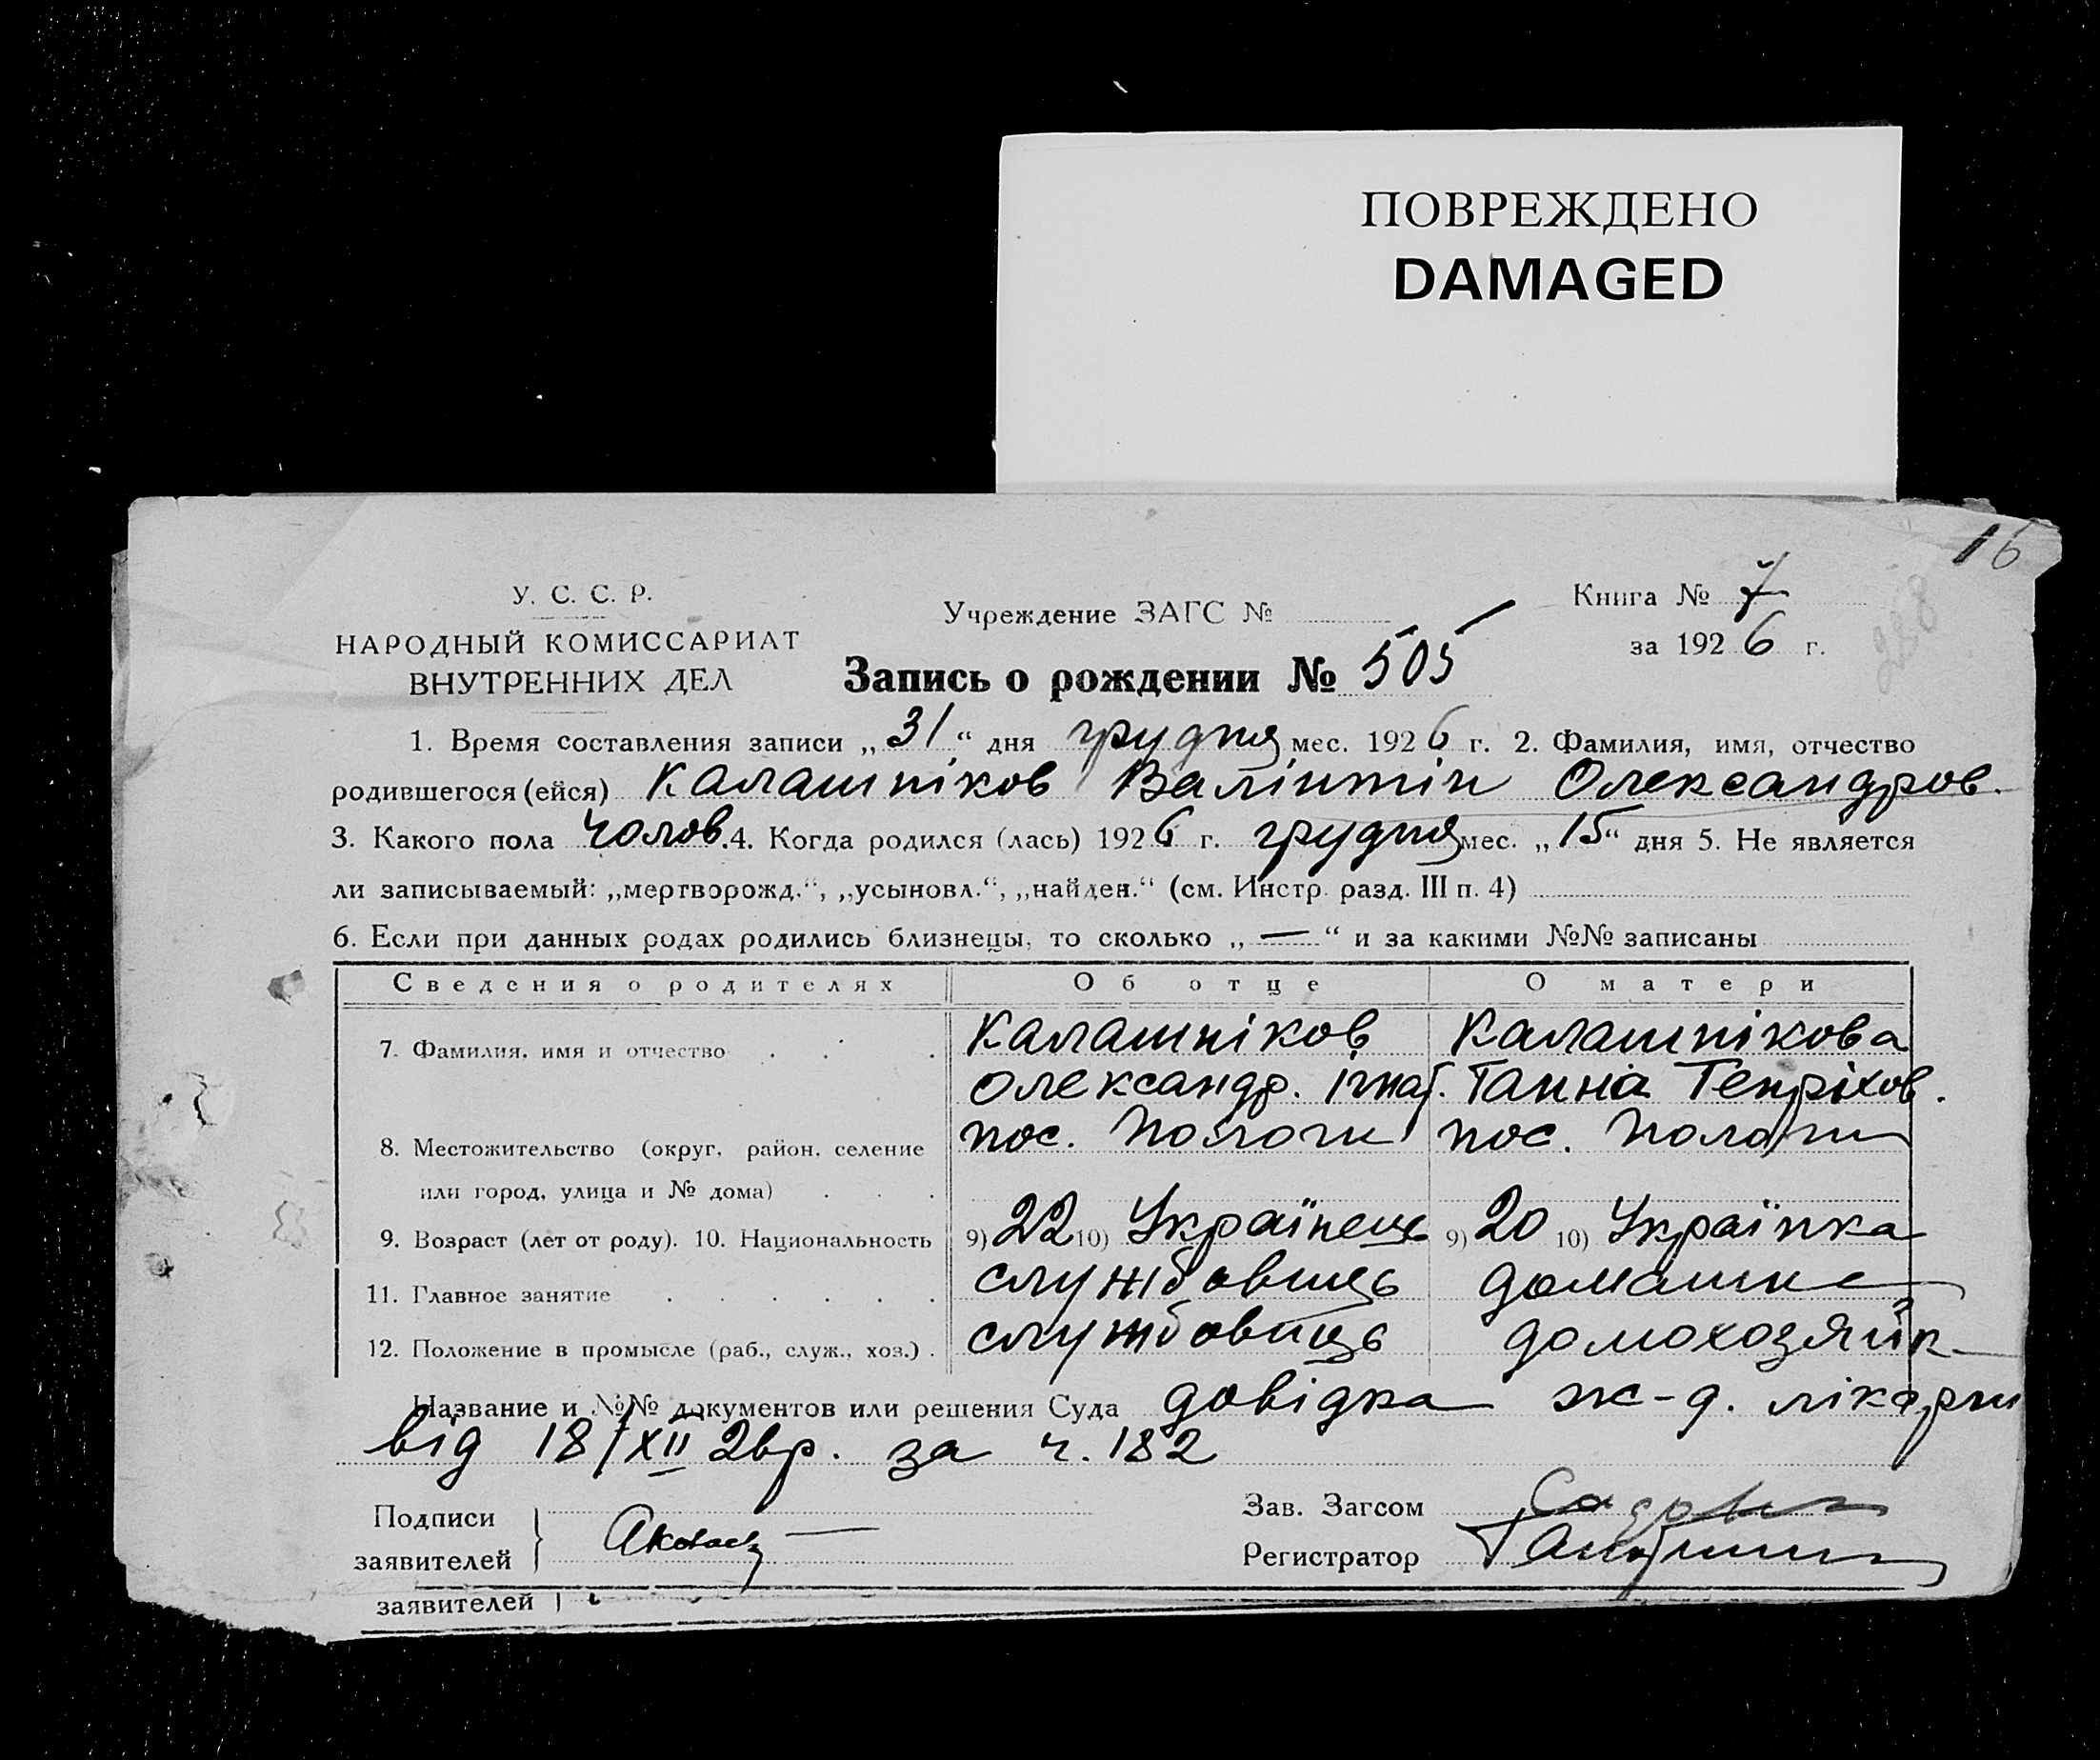 ПОВРЕЖДЕНО
DAMAGED
16
258
У. С. С. Р.
НАРОДНЫЙ КОМИССАРИАТ
ВНУТРЕННИХ ДЕЛ
Учреждение ЗАГС №
Книга № 7
за 1926 г.
Запись о рождении № 505
1. Время составления записи „31“ дня грудня мес. 1926 г. 2. Фамилия, имя, отчество
родившегося (ейся) Калашніков Валінтін Олександров.
3. Какого пола чолов. 4. Когда родился (лась) 1926 г. грудня мес. „15“ дня 5. Не является
ли записываемый: „мертворожд.“, „усыновл.“, „найден.“ (см. Инстр. разд. III п. 4)
6. Если при данных родах родились близнецы, то сколько „—“ и за какими №№ записаны
Сведения о родителях Об отце О матери
7. Фамилия, имя и отчество Калашніков Калашнікова
Олександр. Ігнат. Ганна Генріхов.
8. Местожительство (округ, район, селение пос. Пологи пос. Пологи
или город, улица и № дома)
9. Возраст (лет от роду). 10. Национальность 9) 22 10) Українець 9) 20 10) Українка
11. Главное занятие службовець домашнє
12. Положение в промысле (раб., служ., хоз.) службовець домохозяйк
Название и №№ документов или решения Суда довідка ж-д. лікарні
від 18/XII 26р. за ч. 182
Подписи
заявителей
Зав. Загсом
Регистратор
заявителей